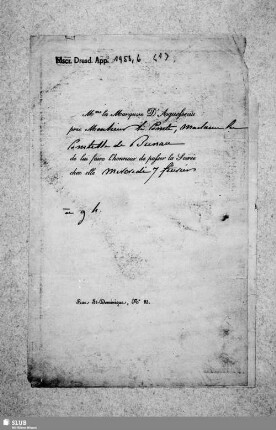 Mscr. Dresd. App. 1958, 6 (1)
Mme la Marquise D'Aguesseau
prie Monsieur le Comte, madame la
Comtesse de Bunau
de lui faire l'honneur de passer la Soirée
chez elle mercredi 7 février
à 9 h.
Rue St-Dominique, No 81.
SLUB